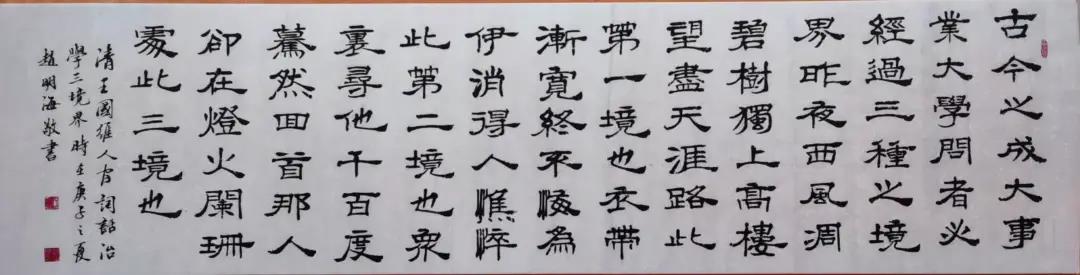 古今之成大事
業大學問者必
經過三種之境
界昨夜西風凋
碧樹獨上高樓
望盡天涯路此
第一境也衣帶
漸寬終不悔為
伊消得人憔悴
此第二境也眾
裏尋他千百度
驀然回首那人
卻在燈火闌珊
處此三境也
清王國維人间詞話治
學三境界時在庚子之夏
趙明海敬書